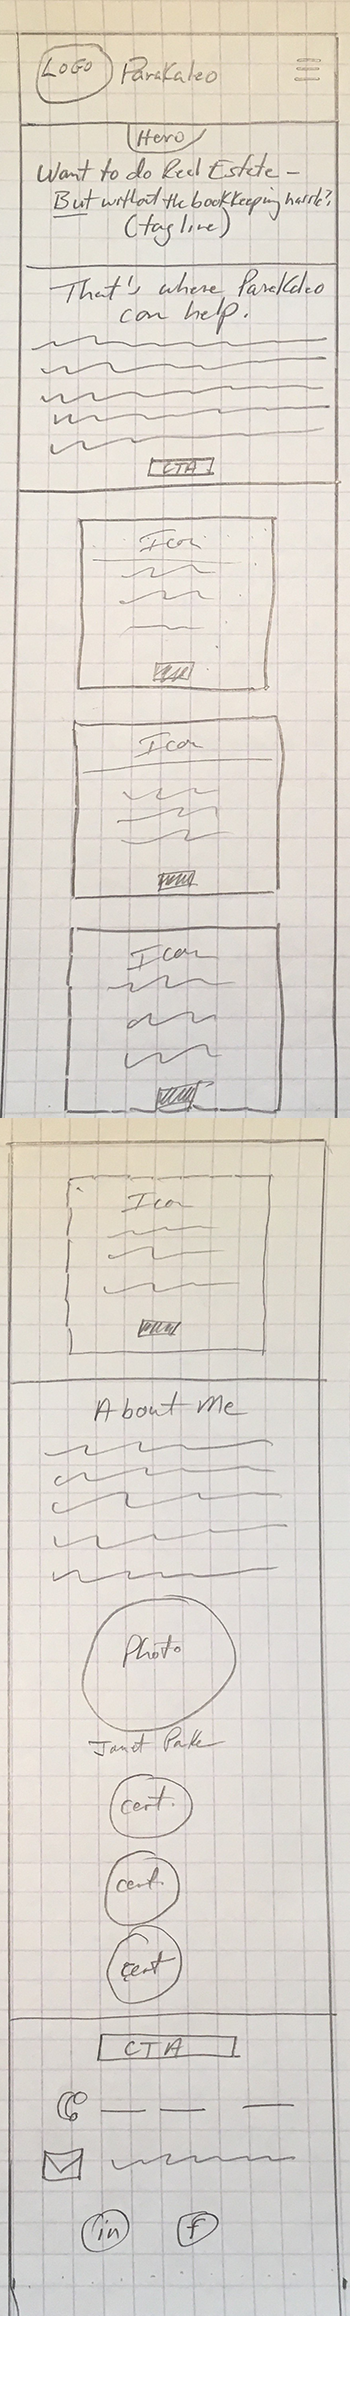 LOGO ParaKaleo
Hero
Want to do Real Estate -
But without the bookkeeping hassle?
(tag line)
That's where ParaKaleo
can help.
CTA
Icon
Icon
Icon
Icon
About Me
Photo
Janet
cert.
cert.
cert
CTA
in f